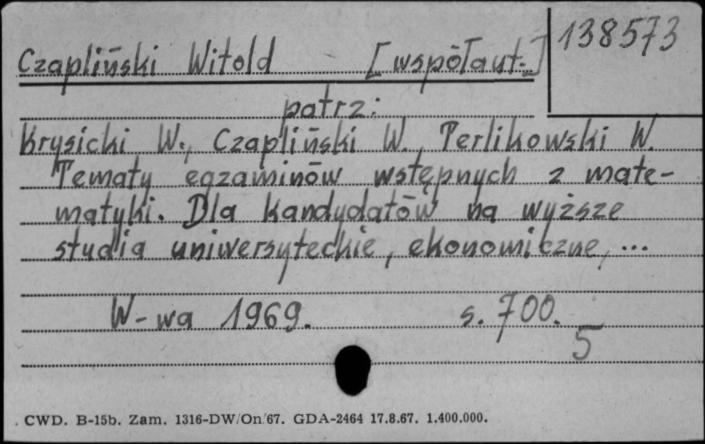 138573
Czapliński Witold [współaut.]
patrz:
Krysicki W., Czapliński W., Perlikowski W.
Tematy egzaminów wstępnych z mate-
matyki. Dla kandydatów na wyższe
studia uniwersyteckie, ekonomiczne, ...
W-wa 1969. s. 700.
5
CWD. B-15b. Zam. 1316-DW/On/67. GDA-2464 17.8.67. 1.400.000.